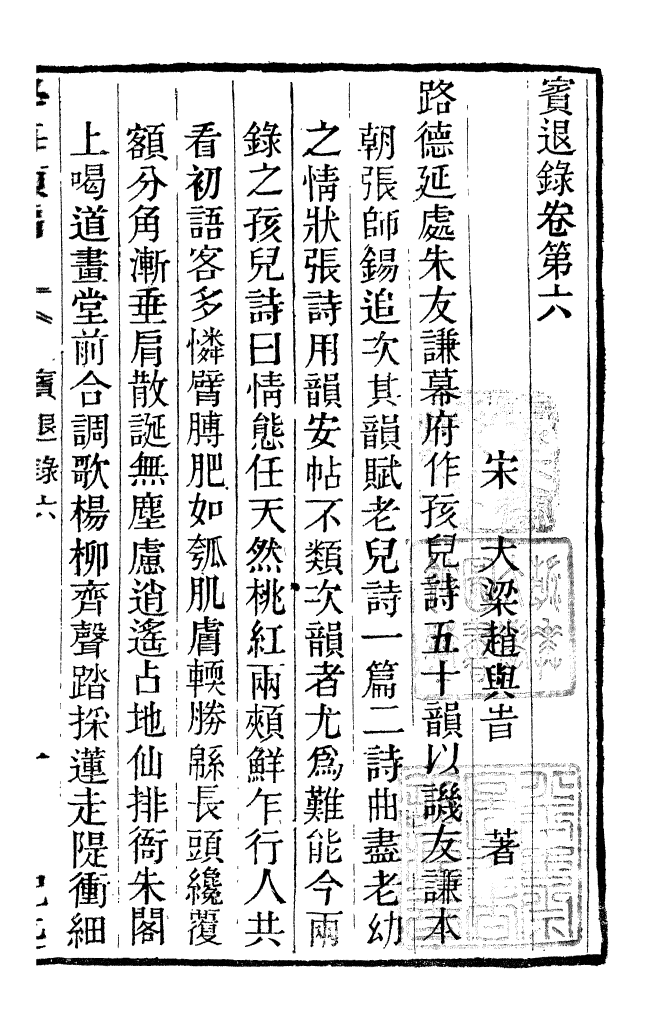 賓退錄卷第六
宋 大梁趙與旹 著
路德延處朱友謙幕府作孩兒詩五十韻以譏友謙本
朝張師錫追次其韻賦老兒詩一篇二詩曲盡老幼
之情狀張詩用韻安帖不類次韻者尤爲難能今兩
錄之孩兒詩曰情態任天然桃紅兩頰鮮乍行人共
看初語客多憐臂膊肥如瓠肌膚輭勝緜長頭纔覆
額分角漸垂肩散誕無塵慮逍遙占地仙排衙朱閣
上喝道畫堂前合調歌楊柳齊聲踏採蓮走隄衝細
賓退錄六 一